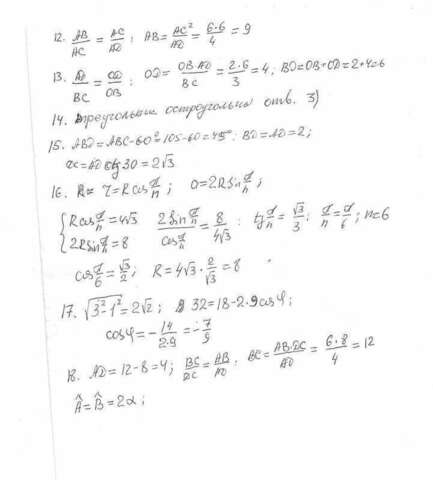 12. AB/AC = AC/AD ; AB = AC²/AD = 6·6/4 = 9
13. AD/BC = OD/OB ; OD = OB·AD/BC = 2·6/3 = 4; BD = OB + OD = 2+4=6
14. Треугольник остроугольн отв. 3)
15. ABD = ABC - 60° = 105 - 60 = 45° ; BD = AD = 2;
= AD ctg 30 = 2√3
16. r = R cos π/n ; a = 2R sin π/n ;
{ R cos π/n = 4√3
2R sin π/n = 8 2 sin π/n / cos π/n = 8/4√3 : tg π/n = √3/3 ; π/n = π/6 ; n = 6
cos π/6 = √3/2 ; R = 4√3 · 2/√3 = 8
17. √3² - 1² = 2√2 ; 32 = 18 - 2·9 cos φ ;
cos φ = - 14/2·9 = - 7/9
18. AD = 12 - 8 = 4 ; BC/DC = AB/AD ; BC = AB·DC/AD = 6·8/4 = 12
Â = B̂ = 2α ;